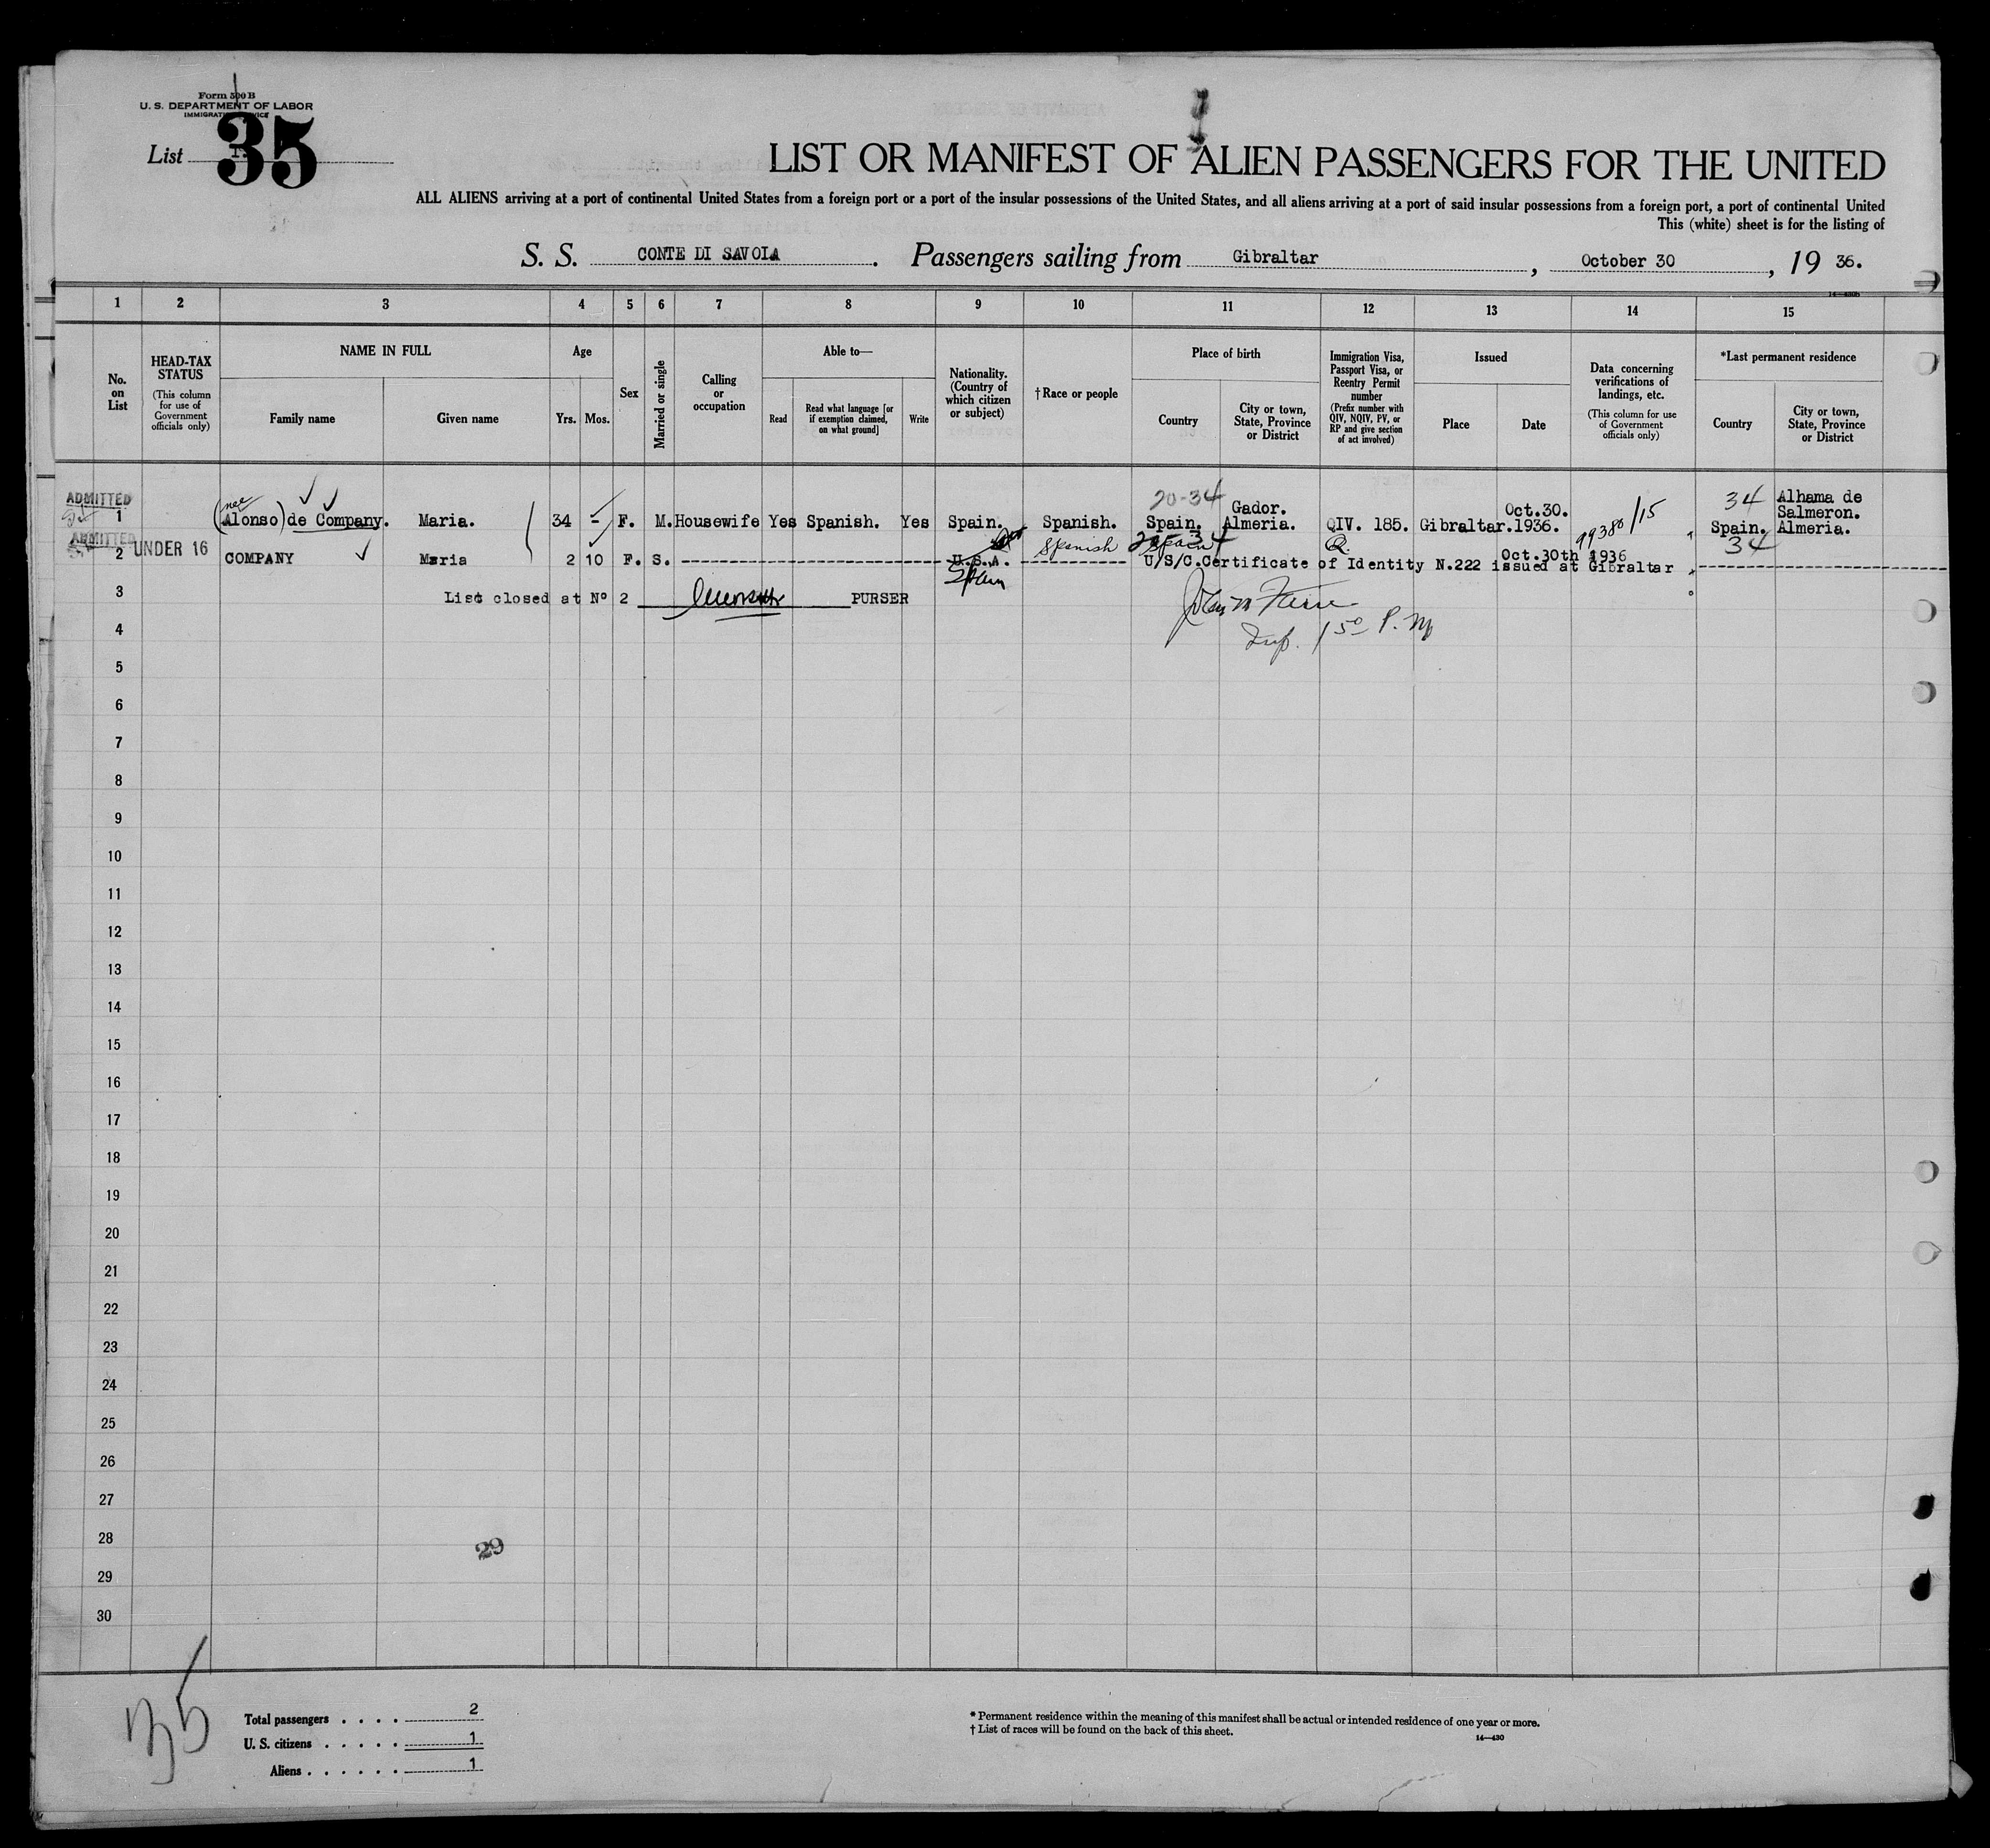 Form 500 B
U. S. DEPARTMENT OF LABOR
List 35
LIST OR MANIFEST OF ALIEN PASSENGERS FOR THE UNITED
ALL ALIENS arriving at a port of continental United States from a foreign port or a port of the insular possessions of the United States, and all aliens arriving at a port of said insular possessions from a foreign port, a port of continental United
This (white) sheet is for the listing of
S. S. CONTE DI SAVOIA. Passengers sailing from Gibraltar, October 30, 19 36.
1 2 3 4 5 6 7 8 9 10 11 12 13 14 15
No. on List
HEAD-TAX STATUS
(This column for use of Government officials only)
NAME IN FULL
Family name
Given name
Age
Yrs. Mos.
Sex
Married or single
Calling or occupation
Able to—
Read
Read what language [or if exemption claimed, on what ground]
Write
Nationality. (Country of which citizen or subject)
†Race or people
Place of birth
Country
City or town, State, Province or District
Immigration Visa, Passport Visa, or Reentry Permit number
(Prefix number with QIV, NQIV, PV, or RP and give section of act involved)
Issued
Place
Date
Data concerning verifications of landings, etc.
(This column for use of Government officials only)
*Last permanent residence
Country
City or town, State, Province or District
ADMITTED
1 (nee Alonso) de Company. Maria. 34 - F. M. Housewife Yes Spanish. Yes Spain. Spanish. 20-34 Spain. Gador. Almeria. QIV. 185. Gibraltar. Oct.30. 1936. 99380/15 34 Spain. Alhama de Salmeron. Almeria.
ADMITTED
2 UNDER 16 COMPANY Maria 2 10 F. S. U.S.A. Spain Spanish Spain U/S/C.Certificate of Identity N.222 issued at Gibraltar Oct.30th 1936 34
3 List closed at Nº 2 PURSER
4 P. M
5
6
7
8
9
10
11
12
13
14
15
16
17
18
19
20
21
22
23
24
25
26
27
28
29
29
30
35
Total passengers . . . . 2
U. S. citizens . . . . . 1
Aliens . . . . . . 1
* Permanent residence within the meaning of this manifest shall be actual or intended residence of one year or more.
† List of races will be found on the back of this sheet.
14—430